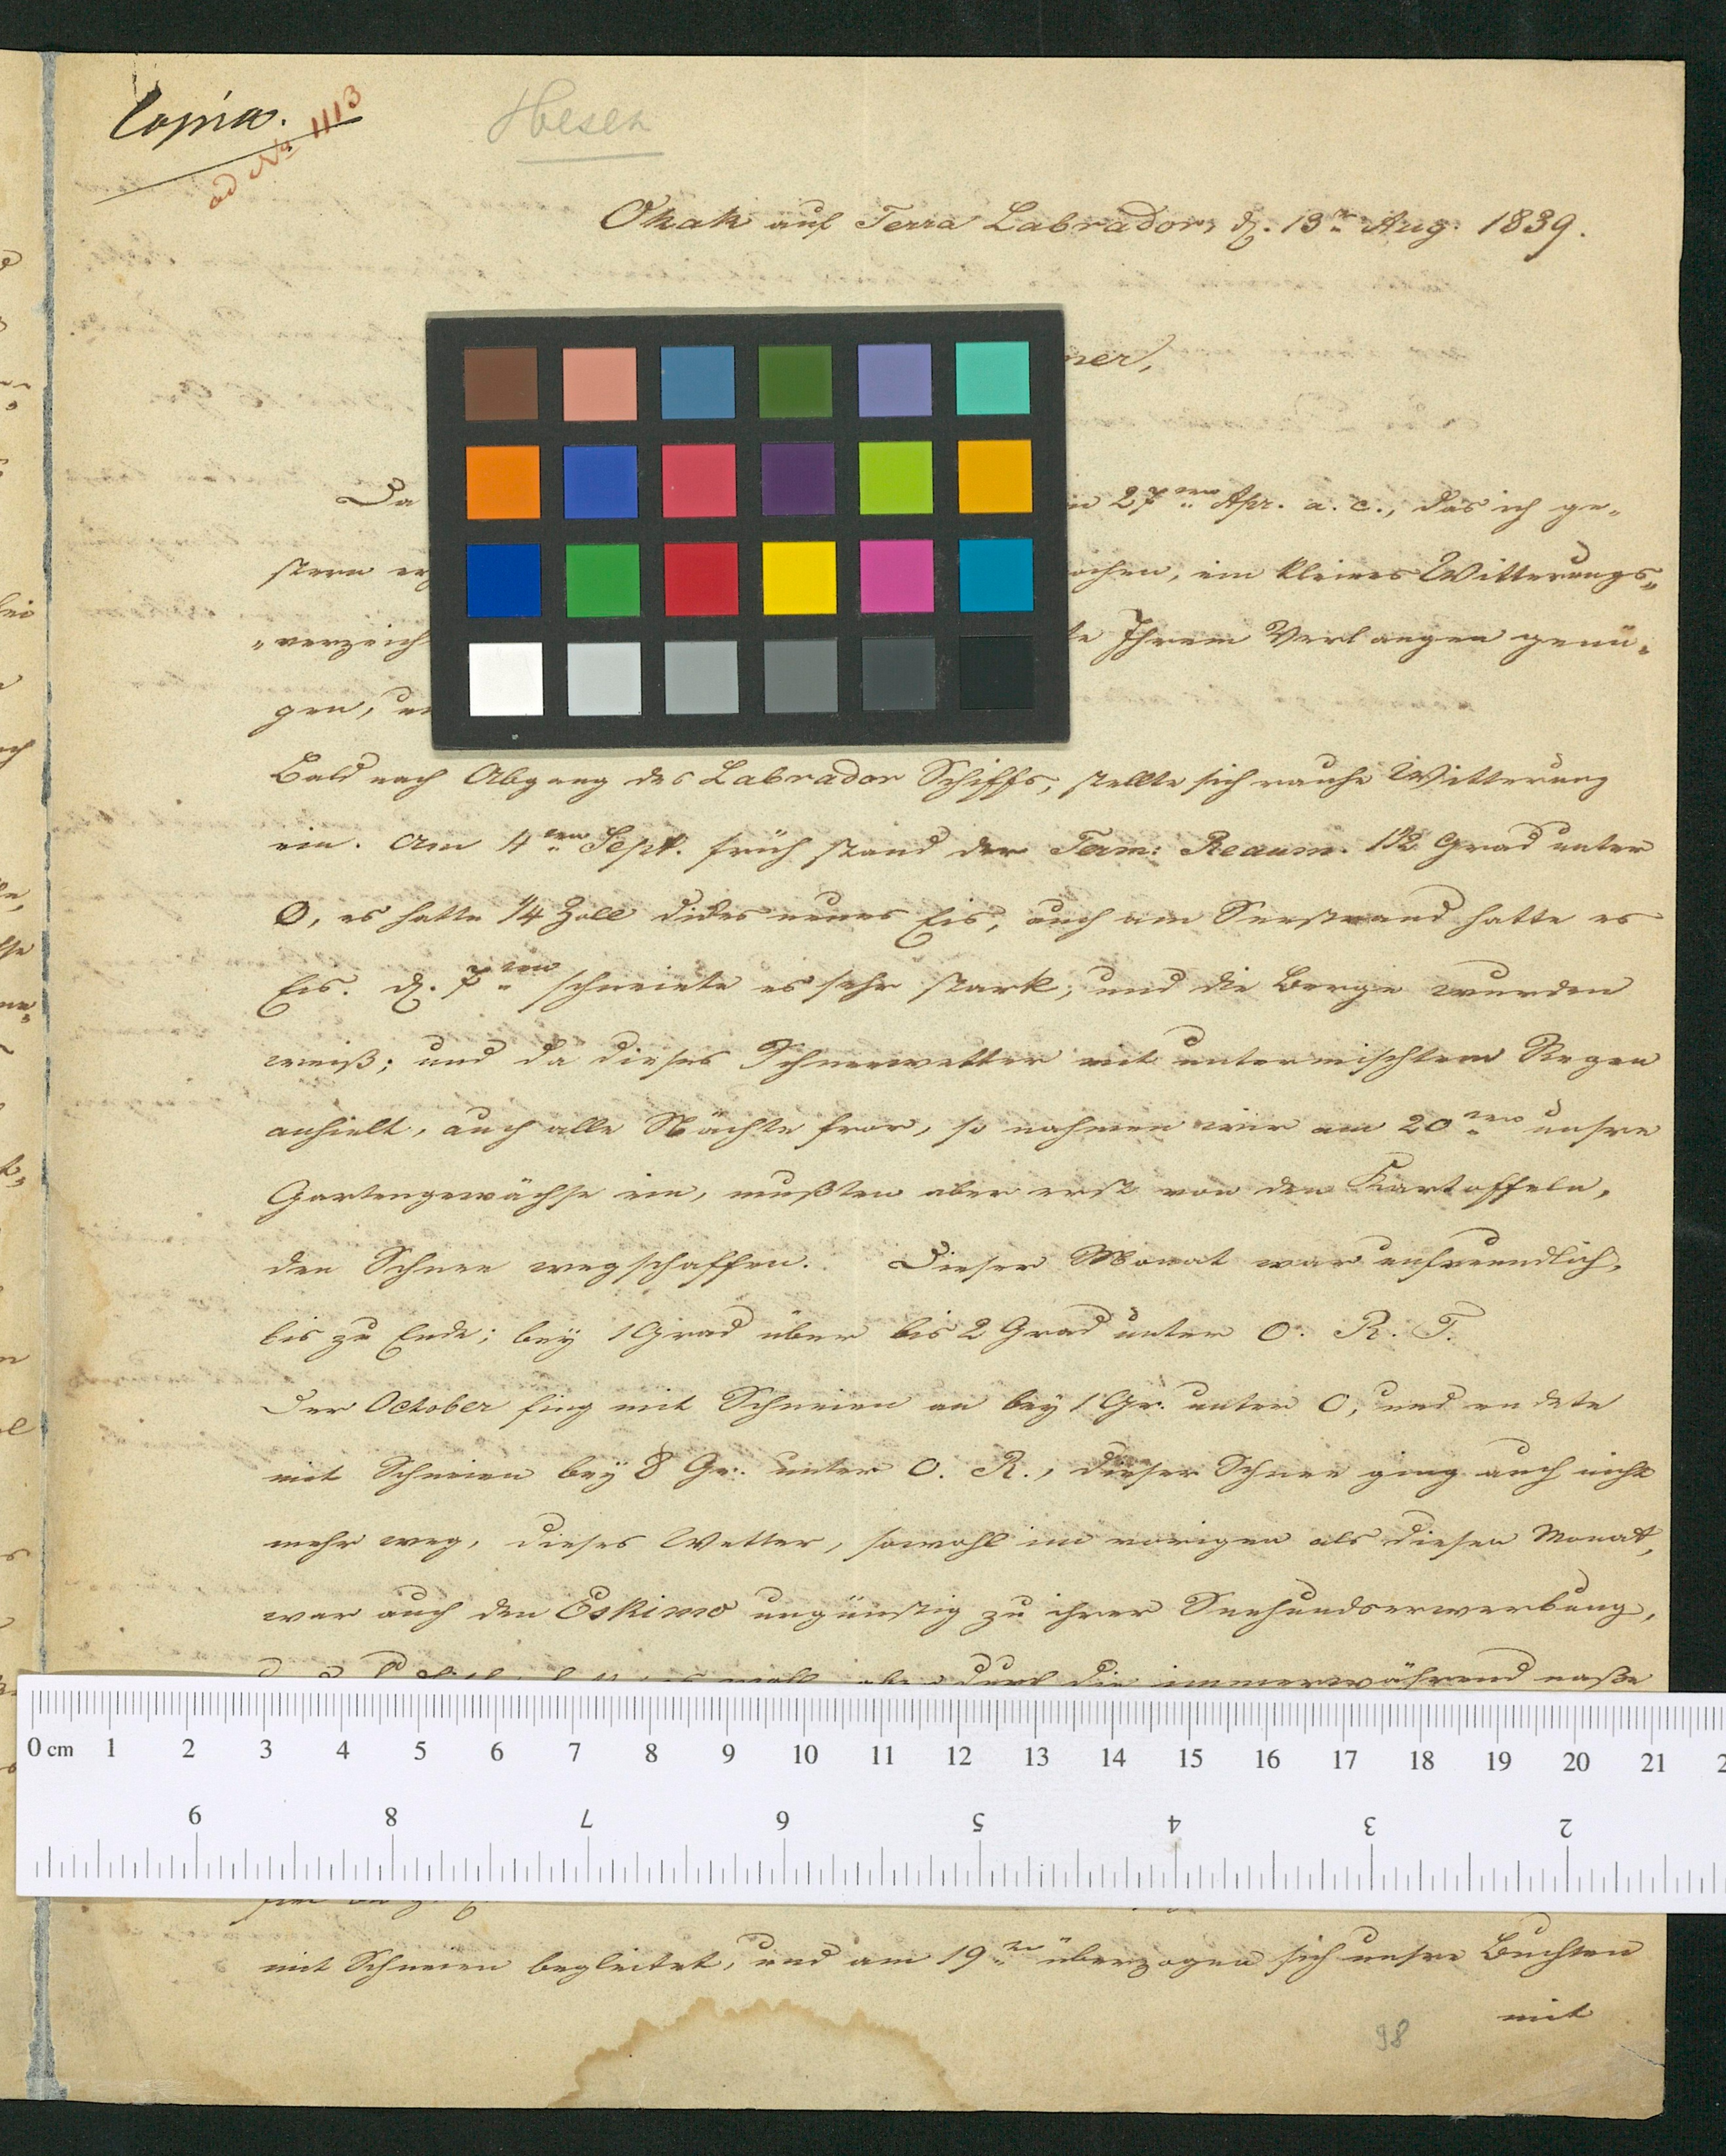 Copia.
ad No 1113
Hesen
Okak auf Terra Labrador, d. 13ten Aug. 1839.
ner,
Da
n 27ten Apr. a. c., das ich ge-
stern er
ochen, ein kleines Witterungs-
-verzeich
te Ihrem Verlangen genü-
gen,
Bald nach Abgang des Labrador Schiffs, stellte sich rauhe Witterung
ein. Am 4ten Sept. früh stand der Term: Reaum. 1½ Grad unter
0, es hatte 1/4 Zoll dickes neues Eis, auch am Seestrand hatte es
Eis. d. 7ten schneiete es sehr stark, und die Berge wurden
weiß; und da dieses Schneewetter mit untermischtem Regen
anhielt, auch alle Nächte fror, so nahmen wir am 20ten unsre
Gartengewächse ein, mußten aber erst von den Kartoffeln,
den Schnee wegschaffen. Dieser Monat war unfreundlich,
bis zu Ende; bey 1 Grad über bis 2 Grad unter 0. R. T.
Der October fing mit Schneien an bey 1 Gr. unter 0, und endete
mit Schneien bey 8 Gr. unter 0. R., dieser Schnee ging auch nicht
mehr weg, dieses Wetter, sowohl im vorigen als diesen Monat,
war auch den Eskimo ungünstig zu ihrer Seehundserwerbung,
durch die immerwährend naße
mit Schneien begleitet, und am 19ten überzogen sich unsre Buchten
mit
98
0 cm 1 2 3 4 5 6 7 8 9 10 11 12 13 14 15 16 17 18 19 20 21 2
9 8 7 6 5 4 3 2